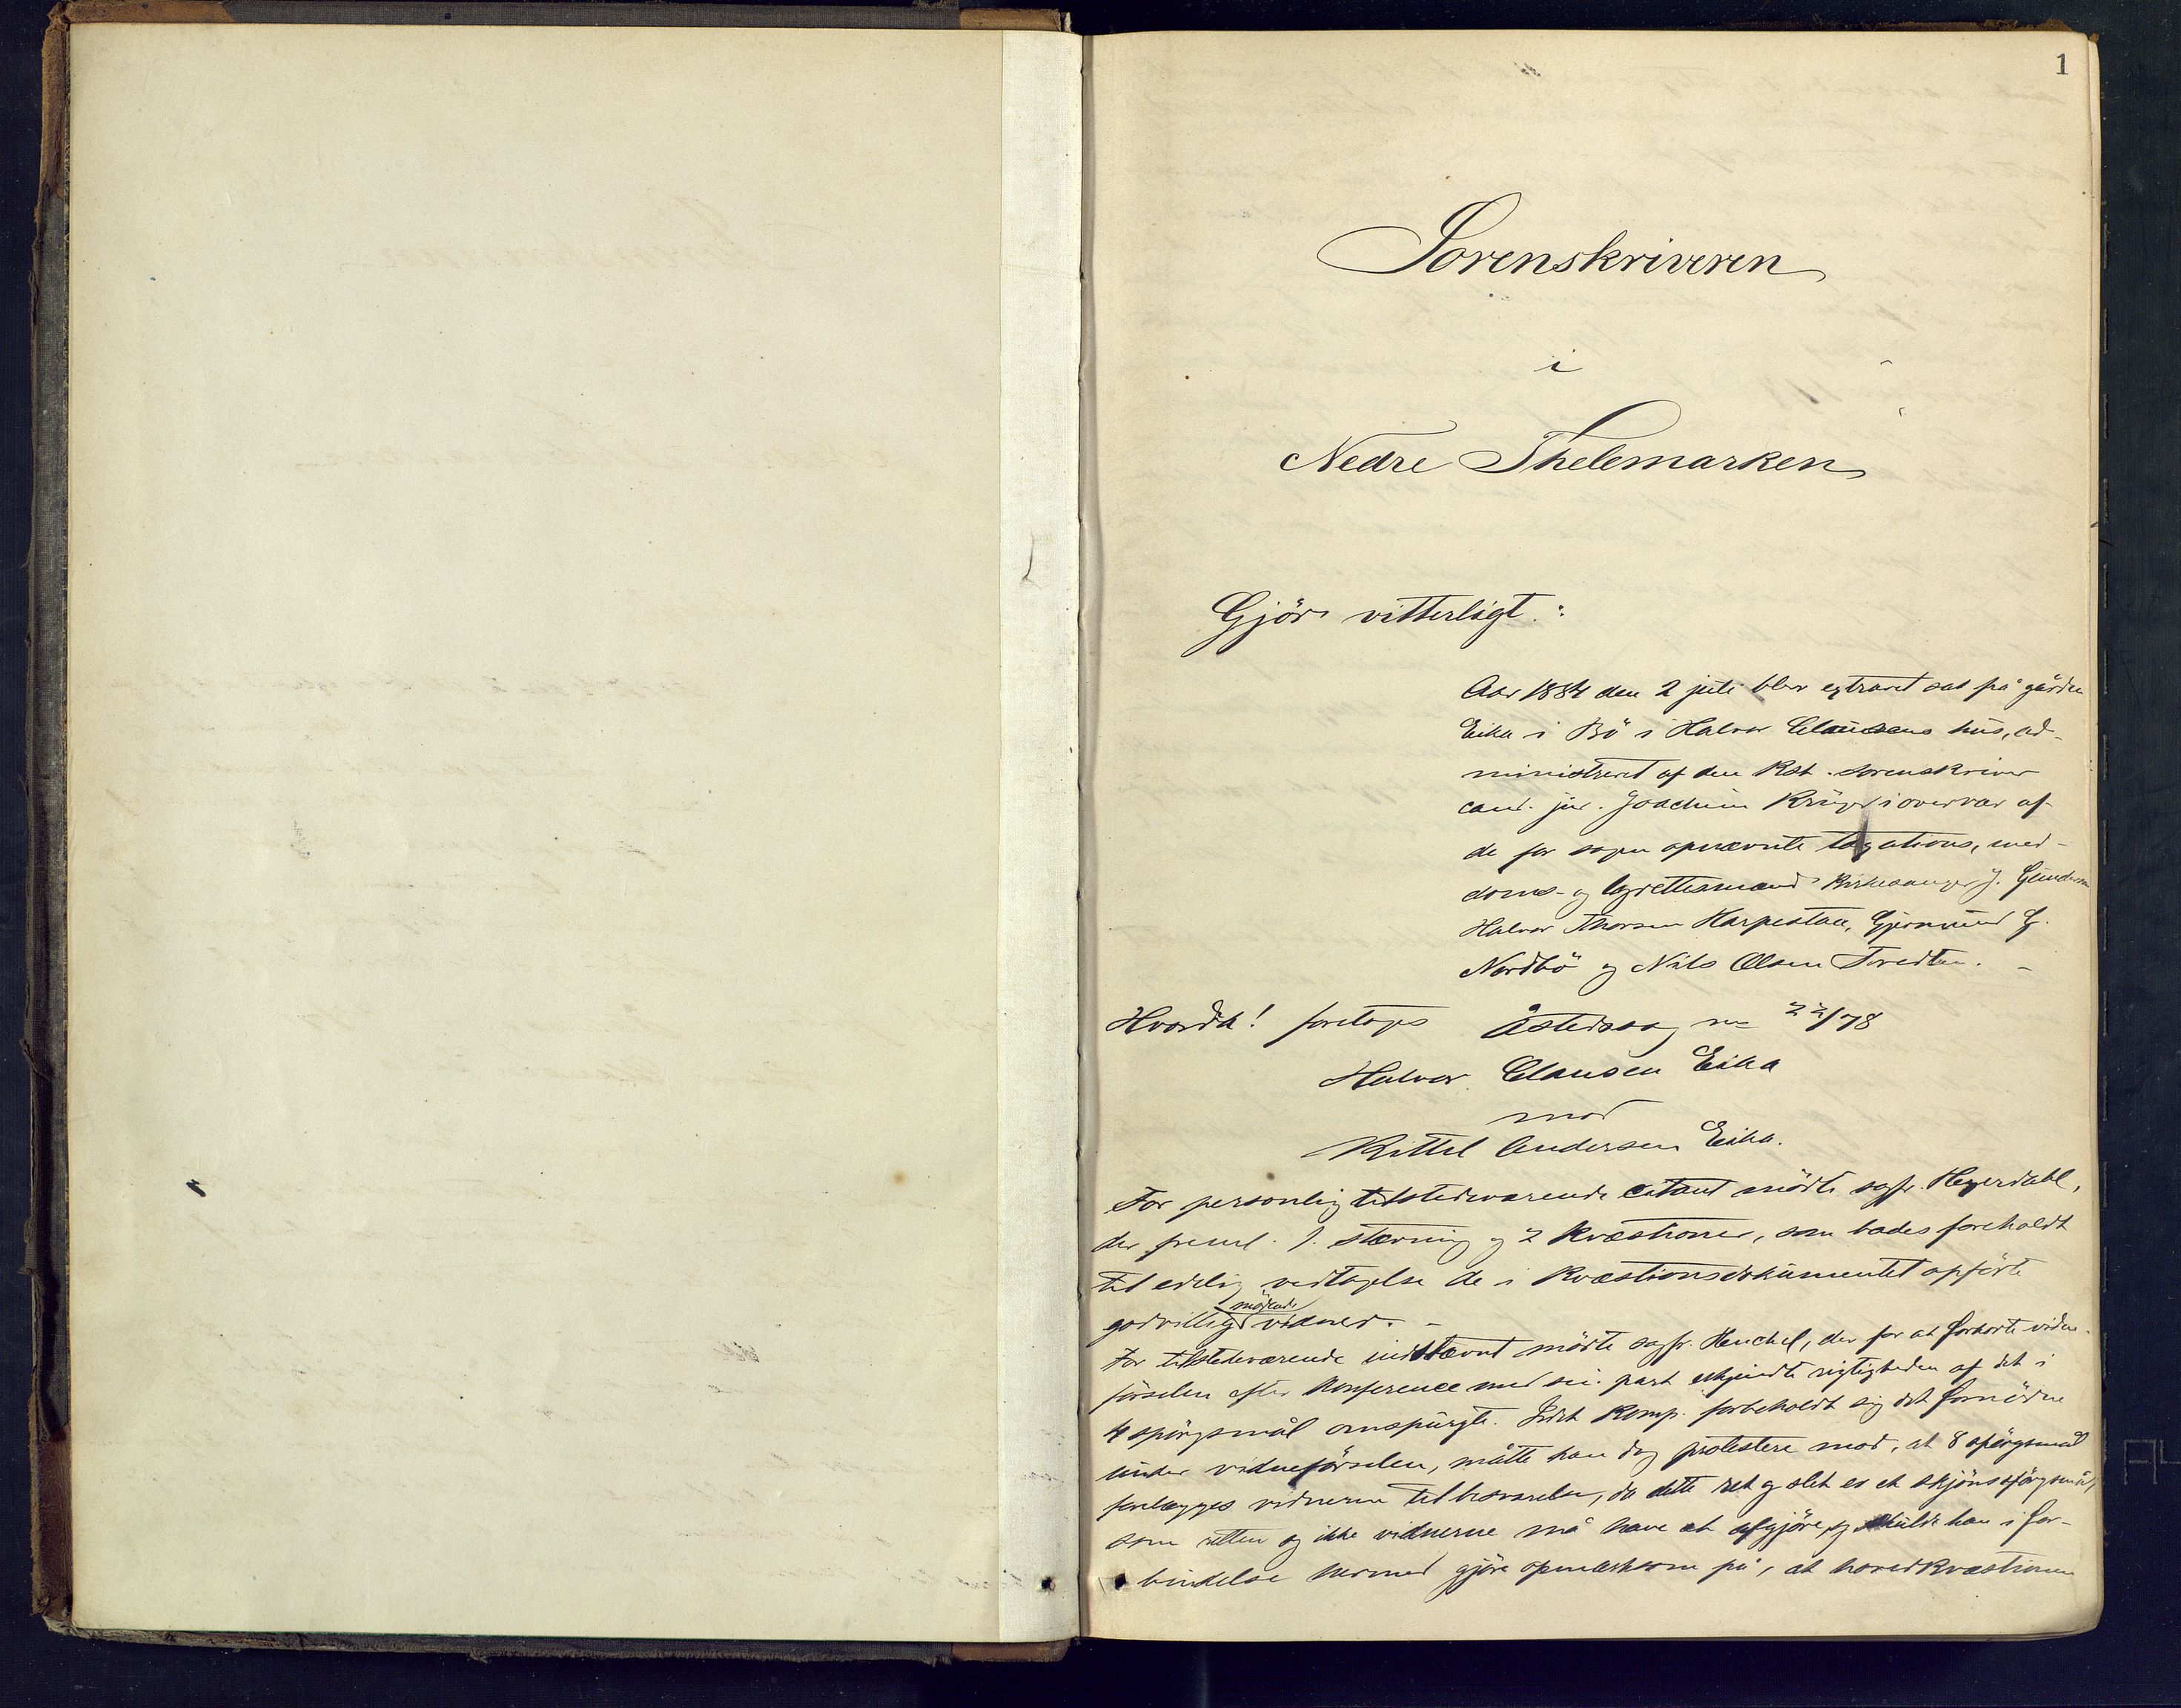 1
Sorenskriveren
i
Nedre Thelemarken
Gjör vitterligt:
Aar 1884 den 2 juli blev extraret sat på gården
Eika i Bö i Halvor Clausens hus, ad-
ministreret af den Kst. sorenskriver
cand. jur. Joachim Krüger i overvær af
de for sagen opnævnte taxations, med-
doms- og lagrettesmænd Kirkesanger J. Gunderson
Halvor Thorsen Harpestaa, Gjermund G.
Nordbö og Nils Olsen Tvedten. -
Hvorda! foretages Åstedssag no 22/78
Halvor Clausen Eika
mod
Kittel Andersen Eika.
For personlig tilstedeværende citant mödte sagfr. Heyerdahl,
der freml. 1. stævning og 2 Kvæstioner, som bades foreholdt
til edelig vedtagelse de i Kvæstionsdokumentet opförte
godvilligt mödende vidner. -
For tilstedeværende indstævnt mödte sagfr. Henchel, der for at forkorte vidne-
förselen efter Konference med sin part erkjendte rigtigheden af det i
4 spörgsmål omspurgte. Idet Komp. forbeholdt sig det fornödne
under vidneförselen, måtte han dog protestere mod, at 8 spörgsmål
forelægges vidnerne til besvarelse, da dette ret og slet er et skjönsspörgsmål,
som retten og ikke vidnerne må have at afgjöre, og skulde han i for-
bindelse hermed gjöre opmerksom på, at hovedkvæstionen